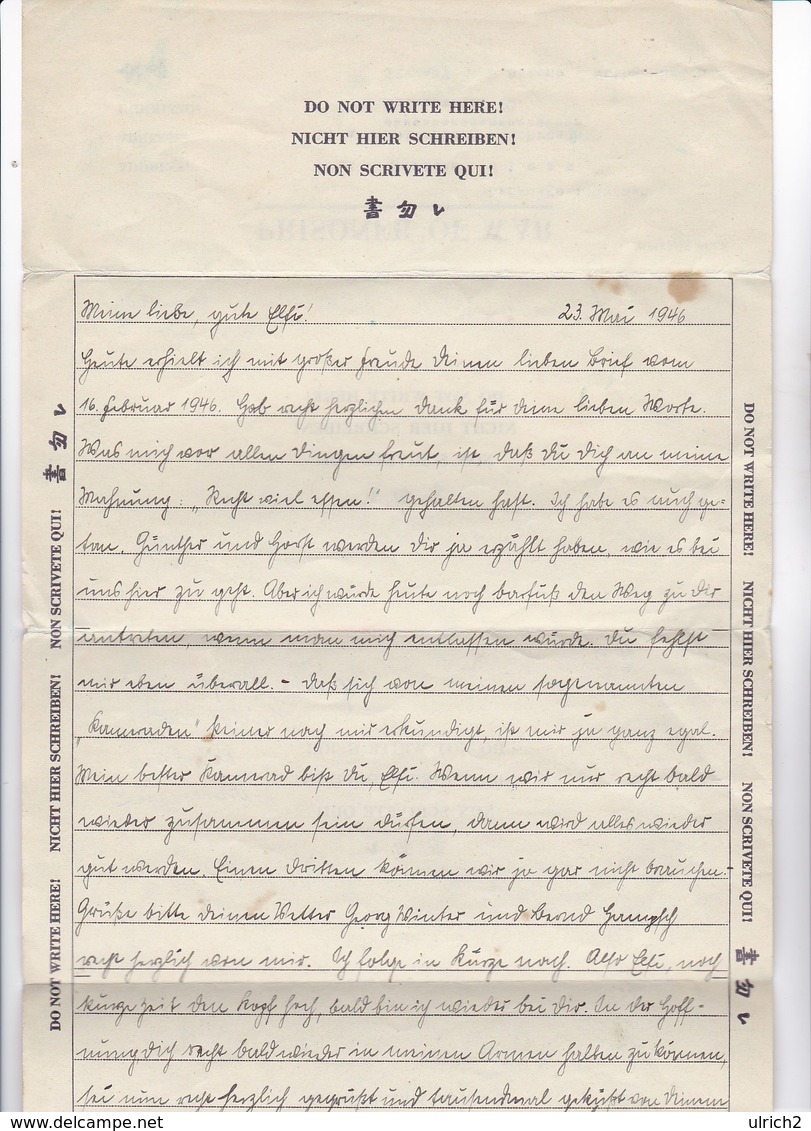 DO NOT WRITE HERE!
NICHT HIER SCHREIBEN!
NON SCRIVETE QUI!
書勿レ
Meine liebe, gute Elfi! 23. Mai 1946
Heute erhielt ich mit großer Freude Deinen lieben Brief vom
16. Februar 1946. Hab recht herzlichen Dank für Deine lieben Worte.
Was mich vor allen Dingen freut, ist, daß Du Dich an meine
Mahnung: „Recht viel essen!" gehalten hast. Ich habe es auch ge=
tan. Günther und Horst werden Dir ja erzählt haben, wie es bei
uns hier zu geht. Aber ich würde heute noch barfuß den Weg zu Dir
antreten, wenn man mich entlassen würde. Du fehlst
mir eben überall. – Daß sich von meinen sogenannten
„Kameraden" keiner nach mir erkundigt, ist mir ja ganz egal.
Mein bester Kamerad bist Du, Elfi. Wenn wir nur recht bald
wieder zusammen sein dürfen, dann wird alles wieder
gut werden. Einen dritten können wir ja gar nicht brauchen. –
Grüße bitte deinen Vetter Georg Winter und Bernd
recht herzlich von mir. Ich folge in Kürze nach. Also Elfi, noch
kurze Zeit den Kopf hoch, bald bin ich wieder bei Dir. In der Hoff-
nung dich recht bald wieder in meinen Armen halten zu können,
sei nun recht herzlich gegrüßt und tausendmal geküßt von Deinem
DO NOT WRITE HERE! NICHT HIER SCHREIBEN! NON SCRIVETE QUI! 書勿レ
DO NOT WRITE HERE! NICHT HIER SCHREIBEN! NON SCRIVETE QUI! 書勿レ
delcampe.net
ulrich2